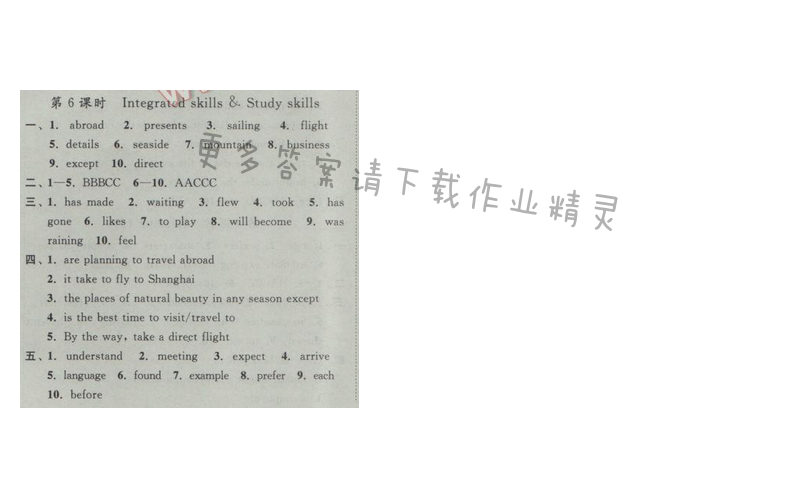 第6课时 Integrated skills & Study skills
一、1. abroad 2. presents 3. sailing 4. flight
5. details 6. seaside 7. mountain 8. business
9. except 10. direct
二、1—5. BBBCC 6—10. AACCC
三、1. has made 2. waiting 3. flew 4. took 5. has
gone 6. likes 7. to play 8. will become 9. was
raining 10. feel
四、1. are planning to travel abroad
2. it take to fly to Shanghai
3. the places of natural beauty in any season except
4. is the best time to visit/travel to
5. By the way, take a direct flight
五、1. understand 2. meeting 3. expect 4. arrive
5. language 6. found 7. example 8. prefer 9. each
10. before
更多答案请下载作业精灵